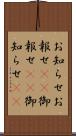 お知らせお
報せ御
報せ御
知らせ